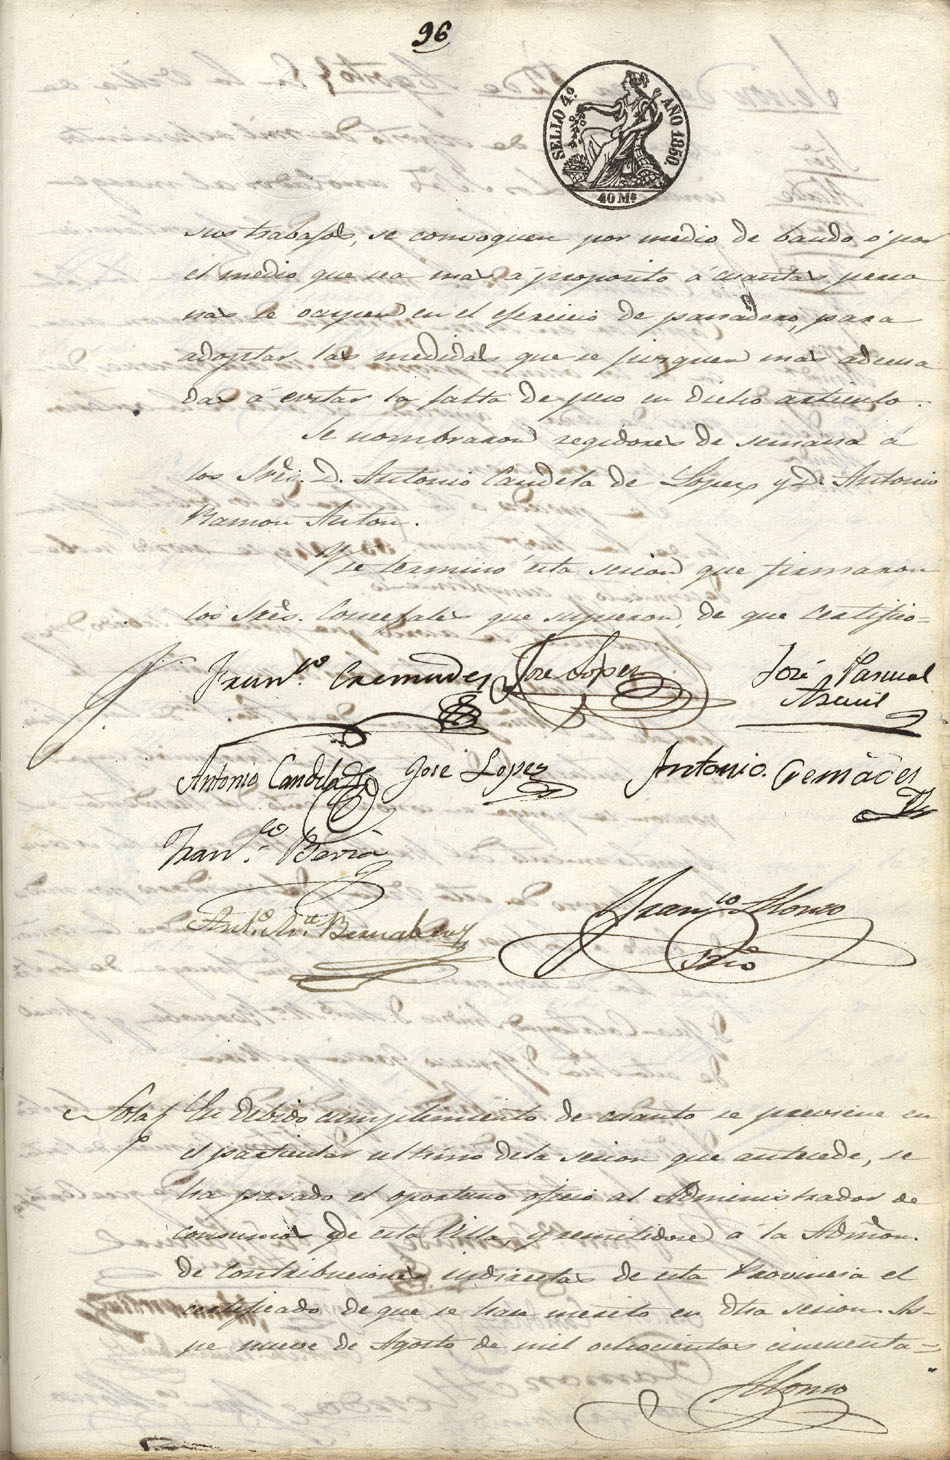 96
SELLO 4º AÑO 1850.
40 Ms
sus trabajos, se convoquen por medio de bando ó por
el medio que sea mas a proposito á cuantas perso
nas se ocupen en el ejercicio de panadero, para
adoptar las medidas que se juzguen mas adecua
das á evitar la falta de peso en dicho articulo.
Se nombraron regidores de semana á
los Sres. D. Antonio Candela de Lopez y D. Antonio
Ramon Anton.
Y se terminó esta sesion que firmaron
los Sres. Concejales que supieron, de que Certifico=
Franco Cremades José Lopez José Pascual
Asencio
Antonio Candela José Lopez Antonio Cremades
Franco Beviá
Anto. Ma. Bernabeu
Franco Alonso
Srio
Nota En debido cumplimiento de cuanto se previene en
el particular ultimo de la sesion que antecede, se
ha pasado el oportuno oficio al Administrador de
consumos de esta Villa, y remitidose á la Admon.
de Contribuciones indirectas de esta Provincia el
certificado de que se han merito en dha sesion. As-
pe nueve de Agosto de mil ochocientos cincuenta=
Alonso